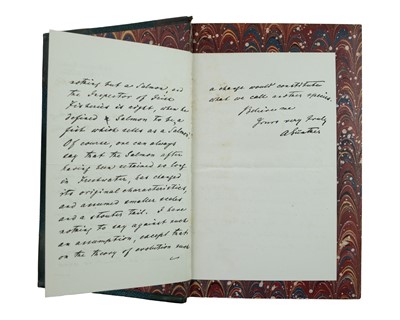 nothing but a Salmon, and
the Inspector of Irish
Fisheries is right, when he
defined a Salmon to be a
fish which sells as a Salmon.
Of course, one can always
say that the Salmon after
having been retained so long
in Freshwater, has changed
its original characteristics,
and assumed smaller scales
and a stouter tail. I have
nothing to say against such
an assumption, except that
on the theory of evolution such
a change would constitute
what we call another species.
Believe me
Yours very truly
A Günther